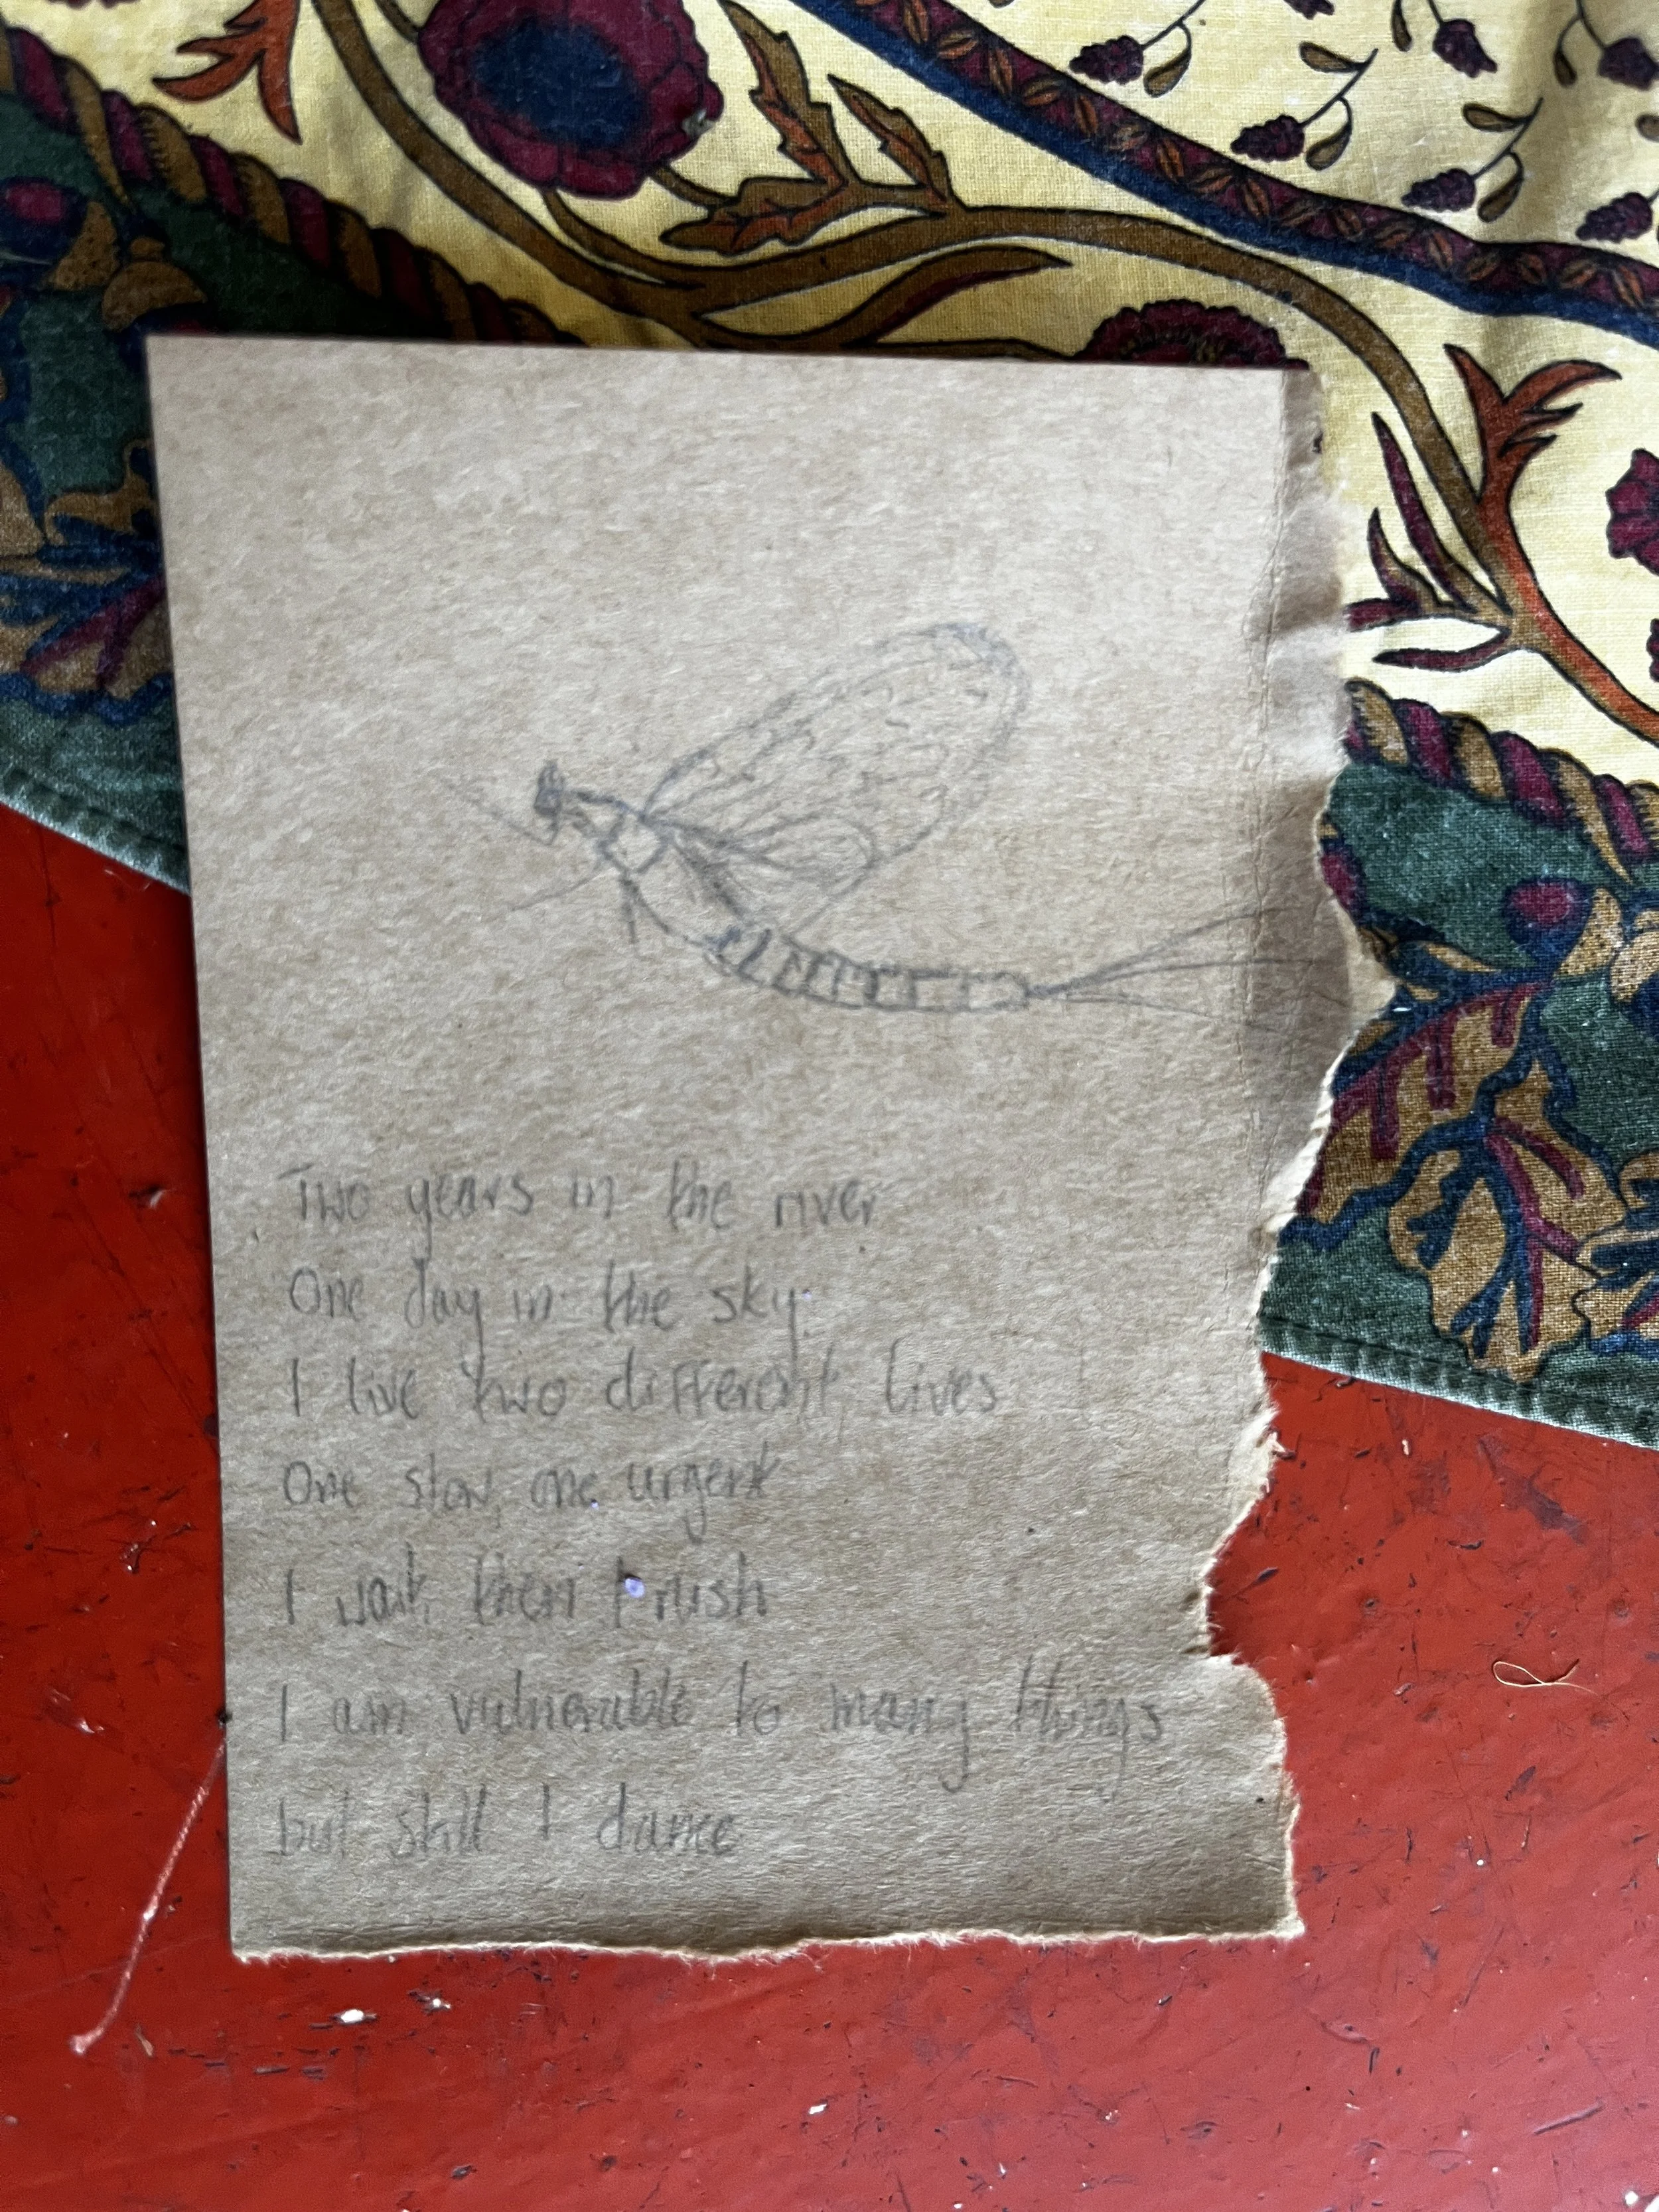 Two years in the river
One day in the sky
I live two different lives
One slow, one urgent
I wait, then I rush
I am vulnerable to many things
but still I dance